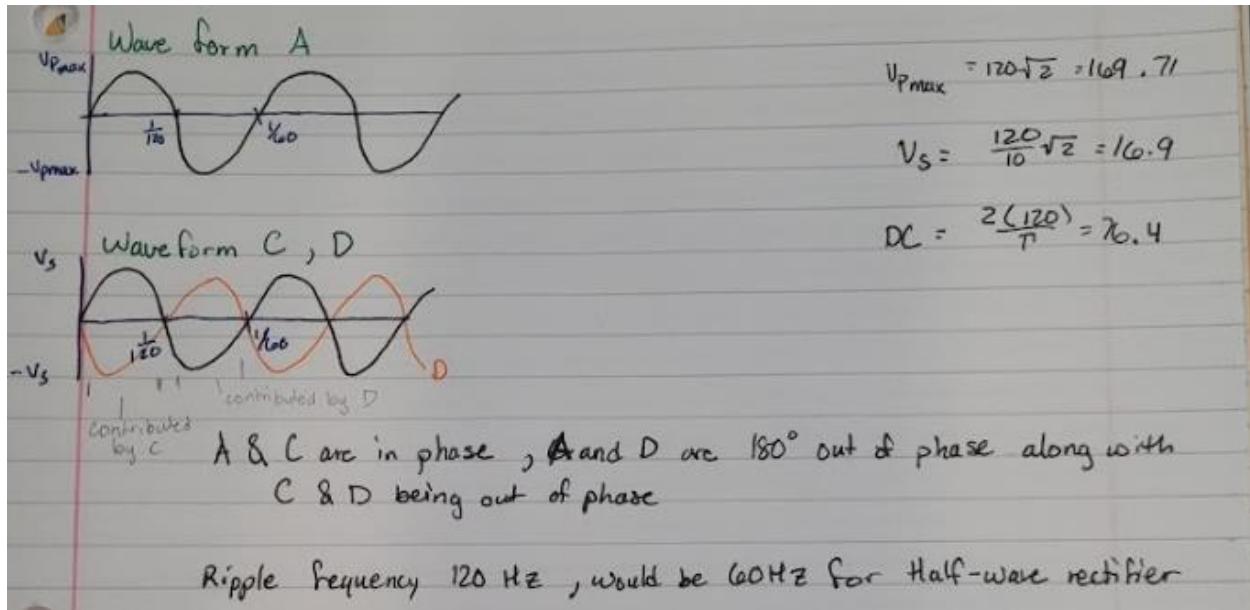 Wave form A
Vpmax
1/120
1/60
-Vpmax
Vpmax = 120√2 = 169.71
Vs = 120/10 √2 = 16.9
DC = 2(120)/π = 76.4
Waveform C, D
Vs
1/120
1/60
-Vs
D
contributed by D
contributed
by C
A & C are in phase, A and D are 180° out of phase along with
C & D being out of phase
Ripple frequency 120 Hz, would be 60Hz for Half-wave rectifier